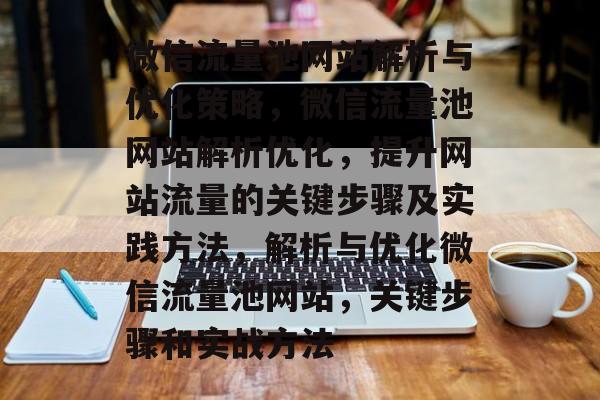 微信流量池网站解析与
优化策略，微信流量池
网站解析优化，提升网
站流量的关键步骤及实
践方法，解析与优化微
信流量池网站，关键步
骤和实战方法